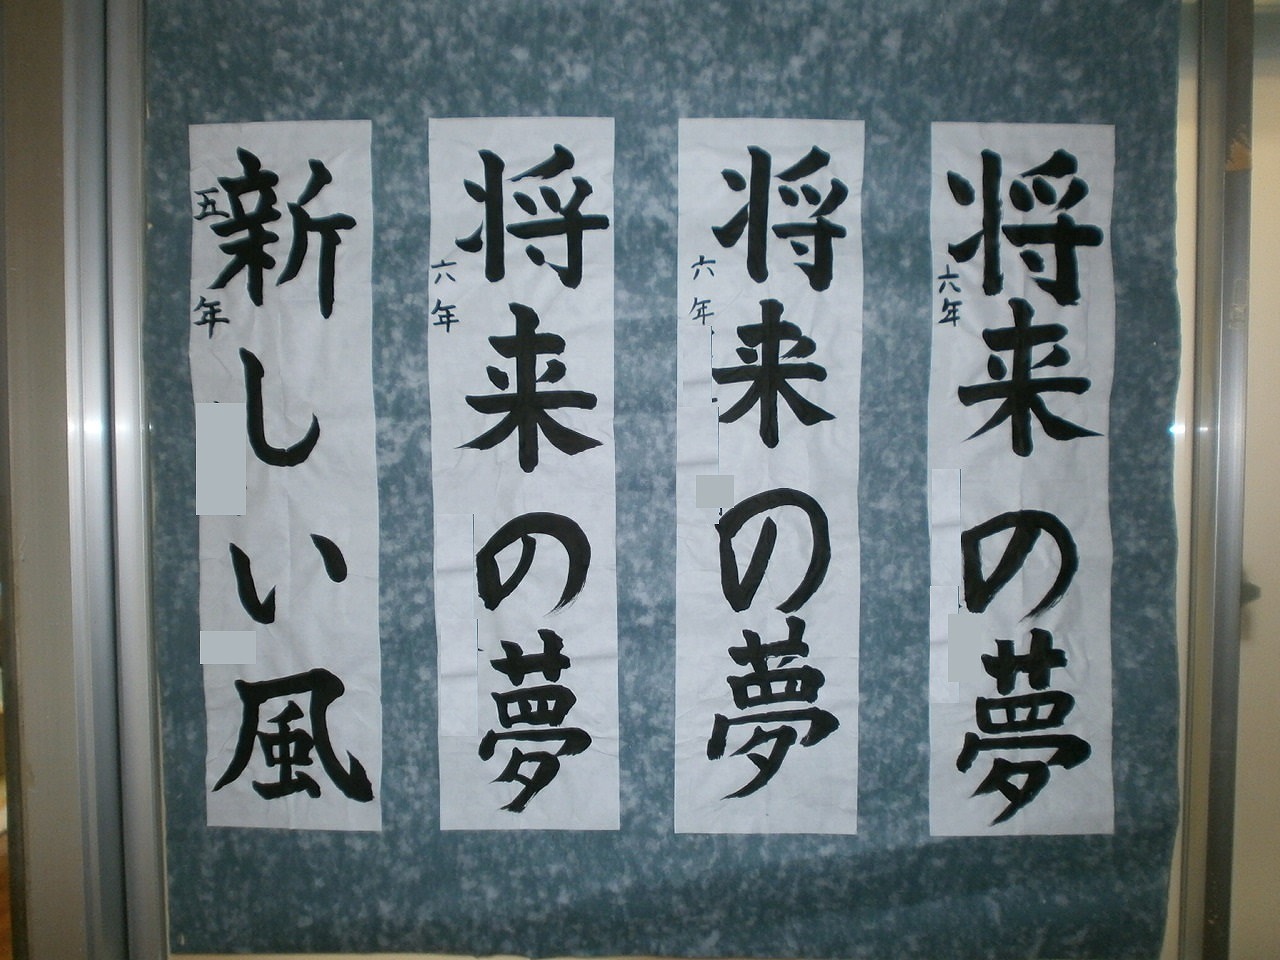 将来の夢
六年
将来の夢
六年
将来の夢
六年
新しい風
五年